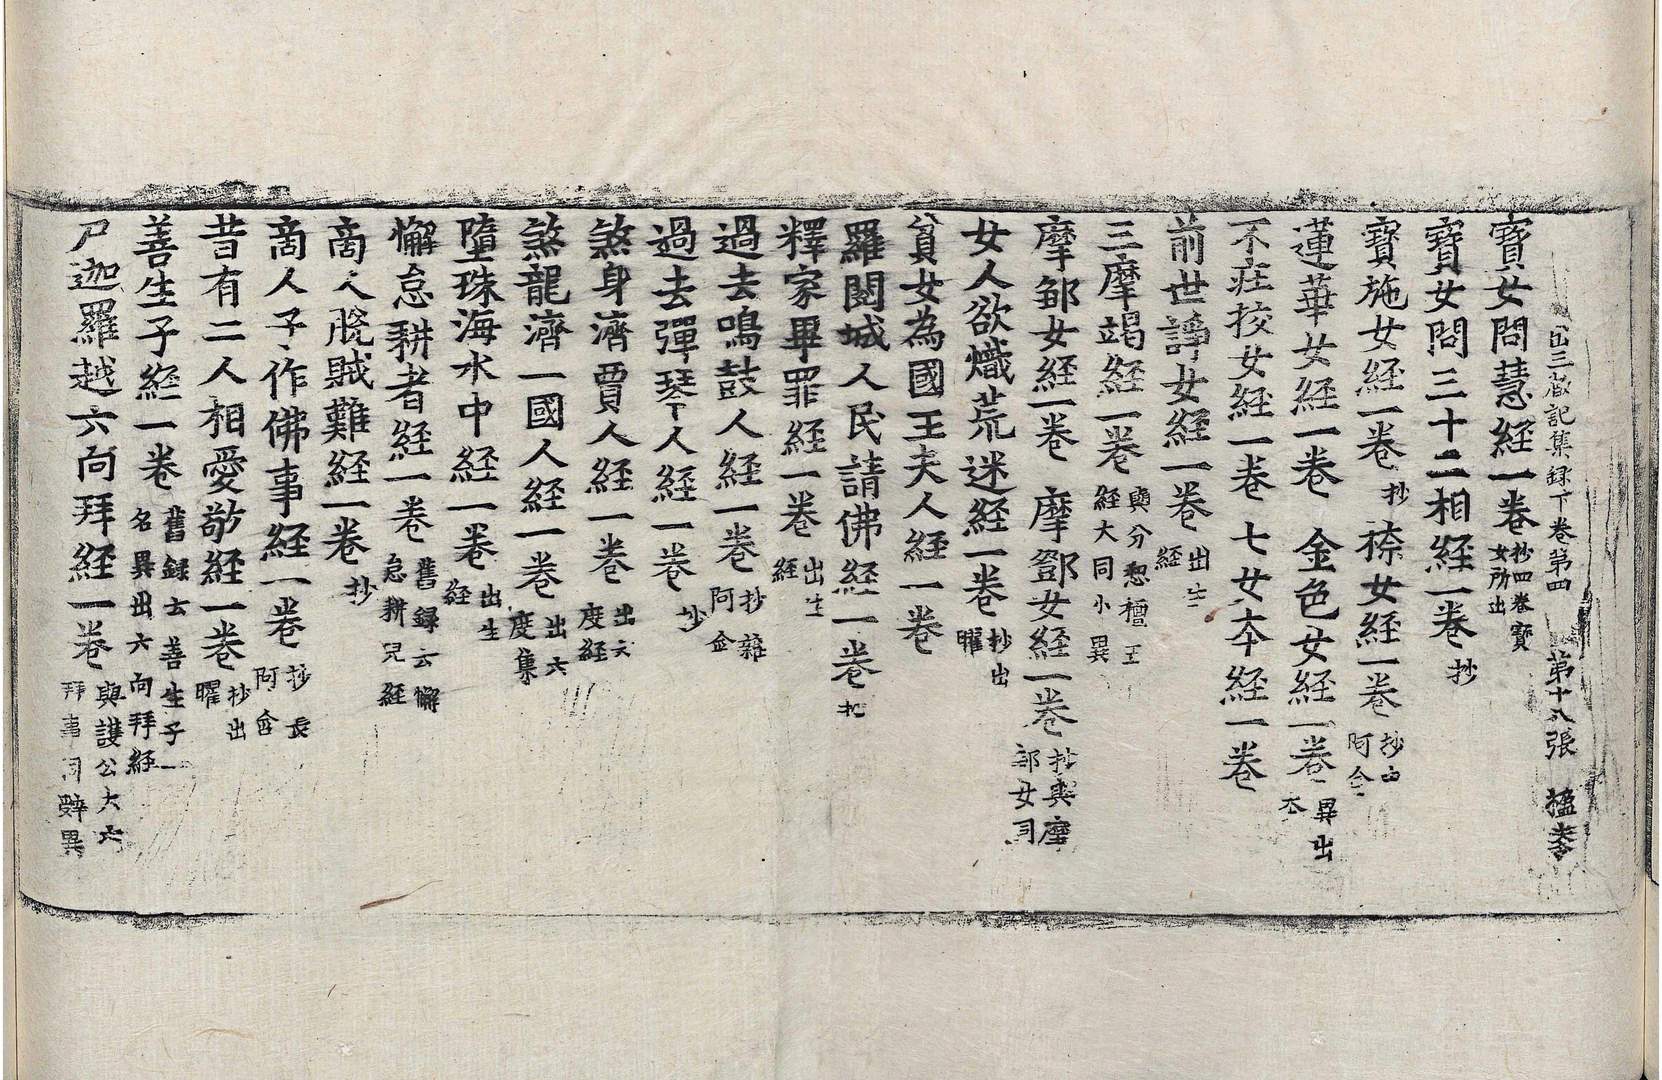 出三藏記集錄下卷第四　第十八張　楹
寶女問慧經一卷 抄四卷寶女所出
寶女問三十二相經一卷 抄
寶施女經一卷 抄 㮈女經一卷 抄
蓮華女經一卷 金色女經一卷 異出本
不莊挍女經一卷 七女本經一卷
前世諍女經一卷 出生經
三摩竭經一卷 與分惒檀王經大同小異
摩鄒女經一卷 摩鄧女經一卷 抄與摩鄒女同
女人欲熾荒迷經一卷 抄出曜
貧女為國王夫人經一卷
羅閱城人民請佛經一卷 抄
釋家畢罪經一卷 出生經
過去鳴鼓人經一卷 抄雜阿含
過去彈琴人經一卷 抄
煞身濟賈人經一卷 出六度經
煞龍濟一國人經一卷 出六度集
墮珠海水中經一卷 出生經
懈怠耕者經一卷 舊錄云懈怠耕兒經
商人脫賊難經一卷 抄
商人子作佛事經一卷 抄長阿含
昔有二人相愛敬經一卷 抄出曜
善生子經一卷 舊錄云善生子一名異出六向拜經
尸迦羅越六向拜經一卷 與護公大六拜事同辭異